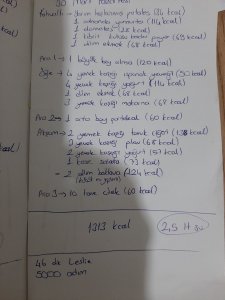 30 Mart Pazartesi
Kahvaltı → Yarım haşlanmış patates (86 kcal)
1 yumurta (114 kcal)
1 domates (28 kcal)
1 kibrit kutusu kadar peynir (69 kcal)
1 dilim ekmek (68 kcal)
Ara 1 → 1 büyük boy elma (120 kcal)
Öğle → 4 yemek kaşığı ıspanak yemeği (150 kcal)
4 yemek kaşığı yoğurt (114 kcal)
1 dilim ekmek (68 kcal)
3 yemek kaşığı makarna (68 kcal)
Ara 2 → 1 orta boy portakal (60 kcal)
Akşam → 2 yemek kaşığı tavuk (138 kcal)
3 yemek kaşığı pilav (68 kcal)
2 yemek kaşığı yoğurt (57 kcal)
1 kase salata (73 kcal)
2 dilim baklava (124 kcal)
Ara 3 → 10 tane çilek (60 kcal)
1313 kcal
2,5 lt su
46 dk Leslie
5000 adım